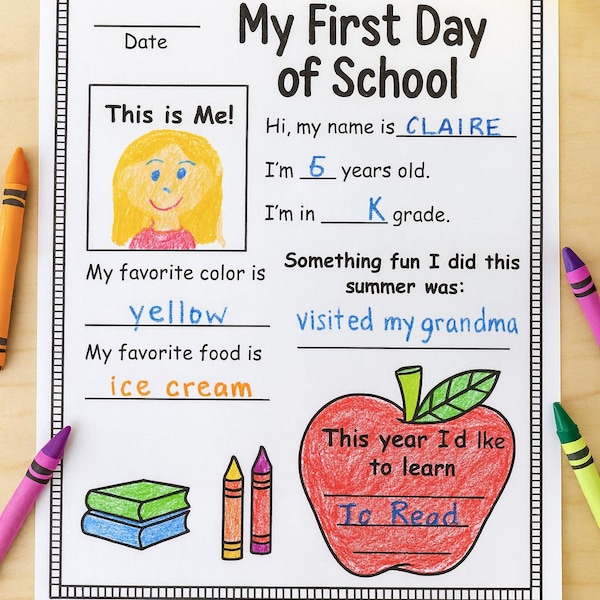 Date
My First Day
of School
This is Me!
Hi, my name is CLAIRE
I'm years old.
I'm in K grade.
My favorite color is
yellow
My favorite food is
ice cream
Something fun I did this
summer was:
visited my grandma
This year I d lke
to learn
To Read